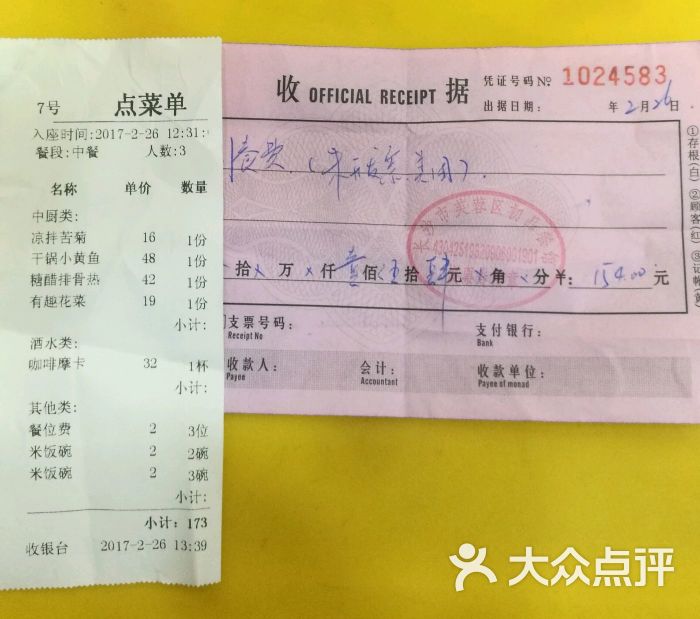 7号 点菜单
入座时间:2017-2-26 12:31:
餐段:中餐 人数:3
名称 单价 数量
中厨类:
凉拌苦菊 16 1份
干锅小黄鱼 48 1份
糖醋排骨热 42 1份
有趣花菜 19 1份
小计:
酒水类:
咖啡摩卡 32 1杯
小计:
其他类:
餐位费 2 3位
米饭碗 2 2碗
米饭碗 2 3碗
小计:
小计: 173
收银台 2017-2-26 13:39
收 OFFICIAL RECEIPT 据
凭证号码 No 1024583
出据日期: 年2月26日
餐费(未开发票 美团).
长沙市芙蓉区
拾×万×仟壹佰伍拾肆元×角×分¥: 154.00 元
支票号码:
Receipt No
支付银行:
Bank
收款人:
Payee
会计:
Accountant
收款单位:
Payee of monad
①存根(白)②顾客(红)③记帐(黄)
大众点评